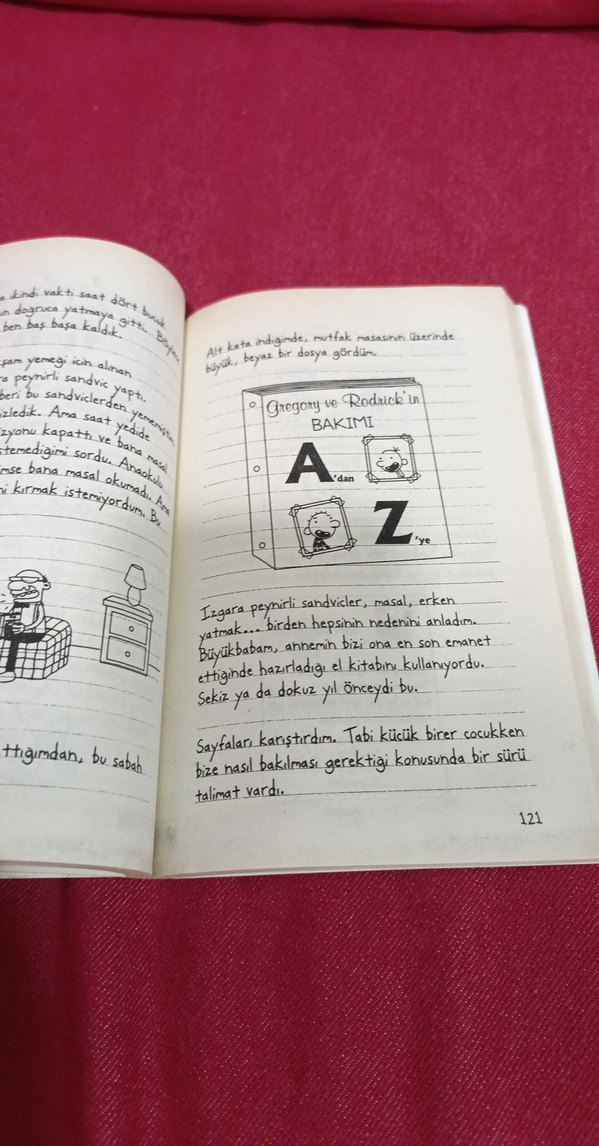 ikindi vakti saat dört buçuk
doğruca yatmaya gitti. Böylece
ben baş başa kaldık.
şam yemeği için alınan
a peynirli sandviç yaptı.
beri bu sandviçlerden yememiştim
izledik. Ama saat yedide
zyonu kapattı ve bana masal
stemediğimi sordu. Anaokulu
mse bana masal okumadı. Ama
ni kırmak istemiyordum. Bu
ttığımdan, bu sabah
Alt kata indiğimde, mutfak masasının üzerinde
büyük, beyaz bir dosya gördüm.
Gregory ve Rodrick'in
BAKIMI
A'dan
Z'ye
Izgara peynirli sandviçler, masal, erken
yatmak... birden hepsinin nedenini anladım.
Büyükbabam, annemin bizi ona en son emanet
ettiğinde hazırladığı el kitabını kullanıyordu.
Sekiz ya da dokuz yıl önceydi bu.
Sayfaları karıştırdım. Tabi küçük birer çocukken
bize nasıl bakılması gerektiği konusunda bir sürü
talimat vardı.
121